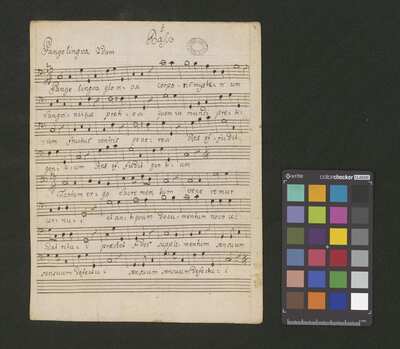 Basso
Pange lingua
Pange lingua glo ri o si corpo ris myste ri um
sangui nisque preti o si quem in mundi preti
um fructus ventris gene rosi Rex ef fudit
gen ti um Rex ef fudit gen ti um
Tantum er go Sacra men tum vene re mur
cer nu i et an ti quum docu mentum novo ce
dat ritu i praestet fides supple mentum sensuum
sensuum defectu i sensuum sensuum defectu i
x-rite
colorchecker CLASSIC